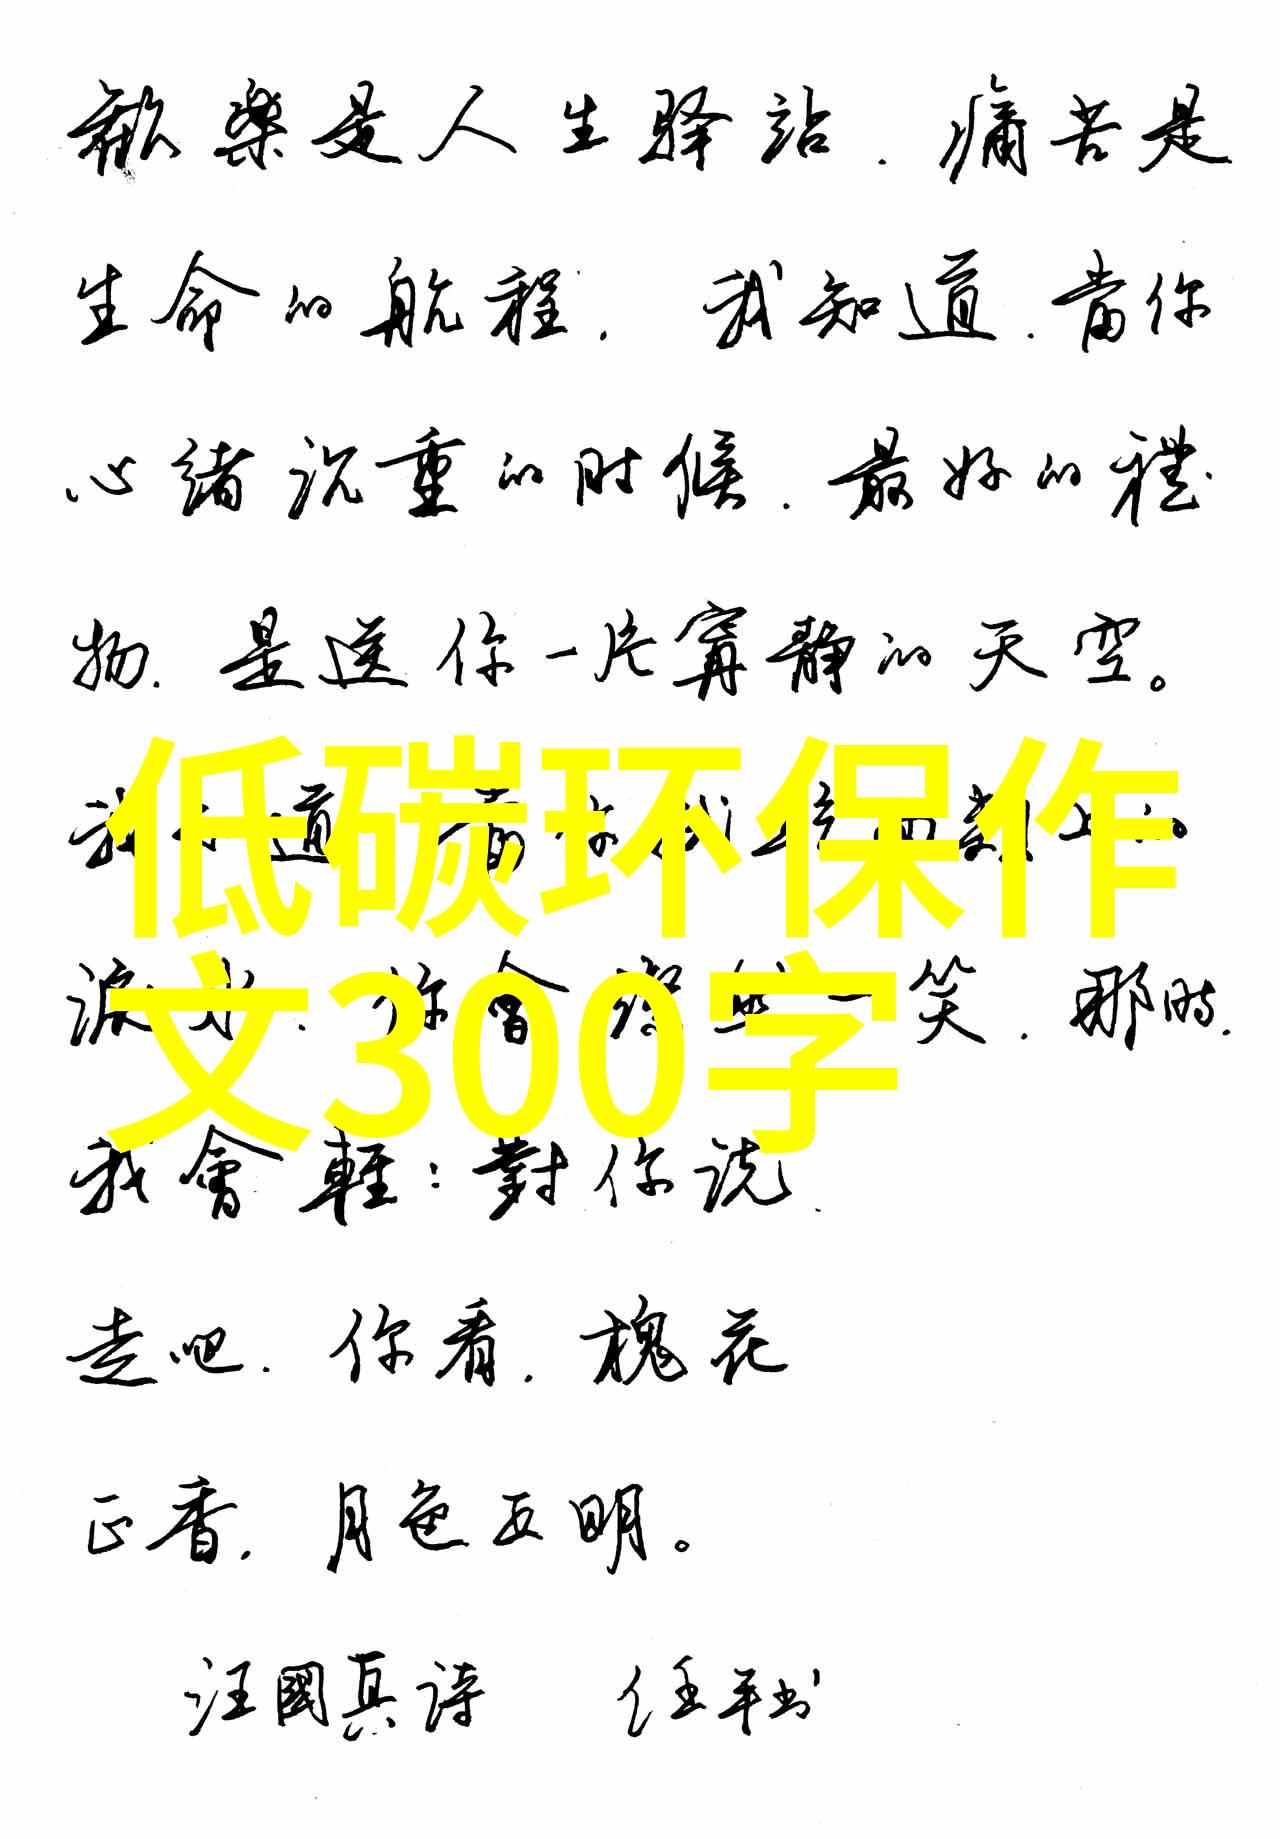 歡樂是人生驿站．痛苦是
生命的航程．我知道．當你
心緒沉重的时候．最好的禮
物．是送你一片寧静的天空。
低碳环保作
我知道
淚水．你會 一笑．那時．
文300字
我會輕：對你说．
走吧．你看．槐花
正香．月色正明。
汪國真诗 任平书